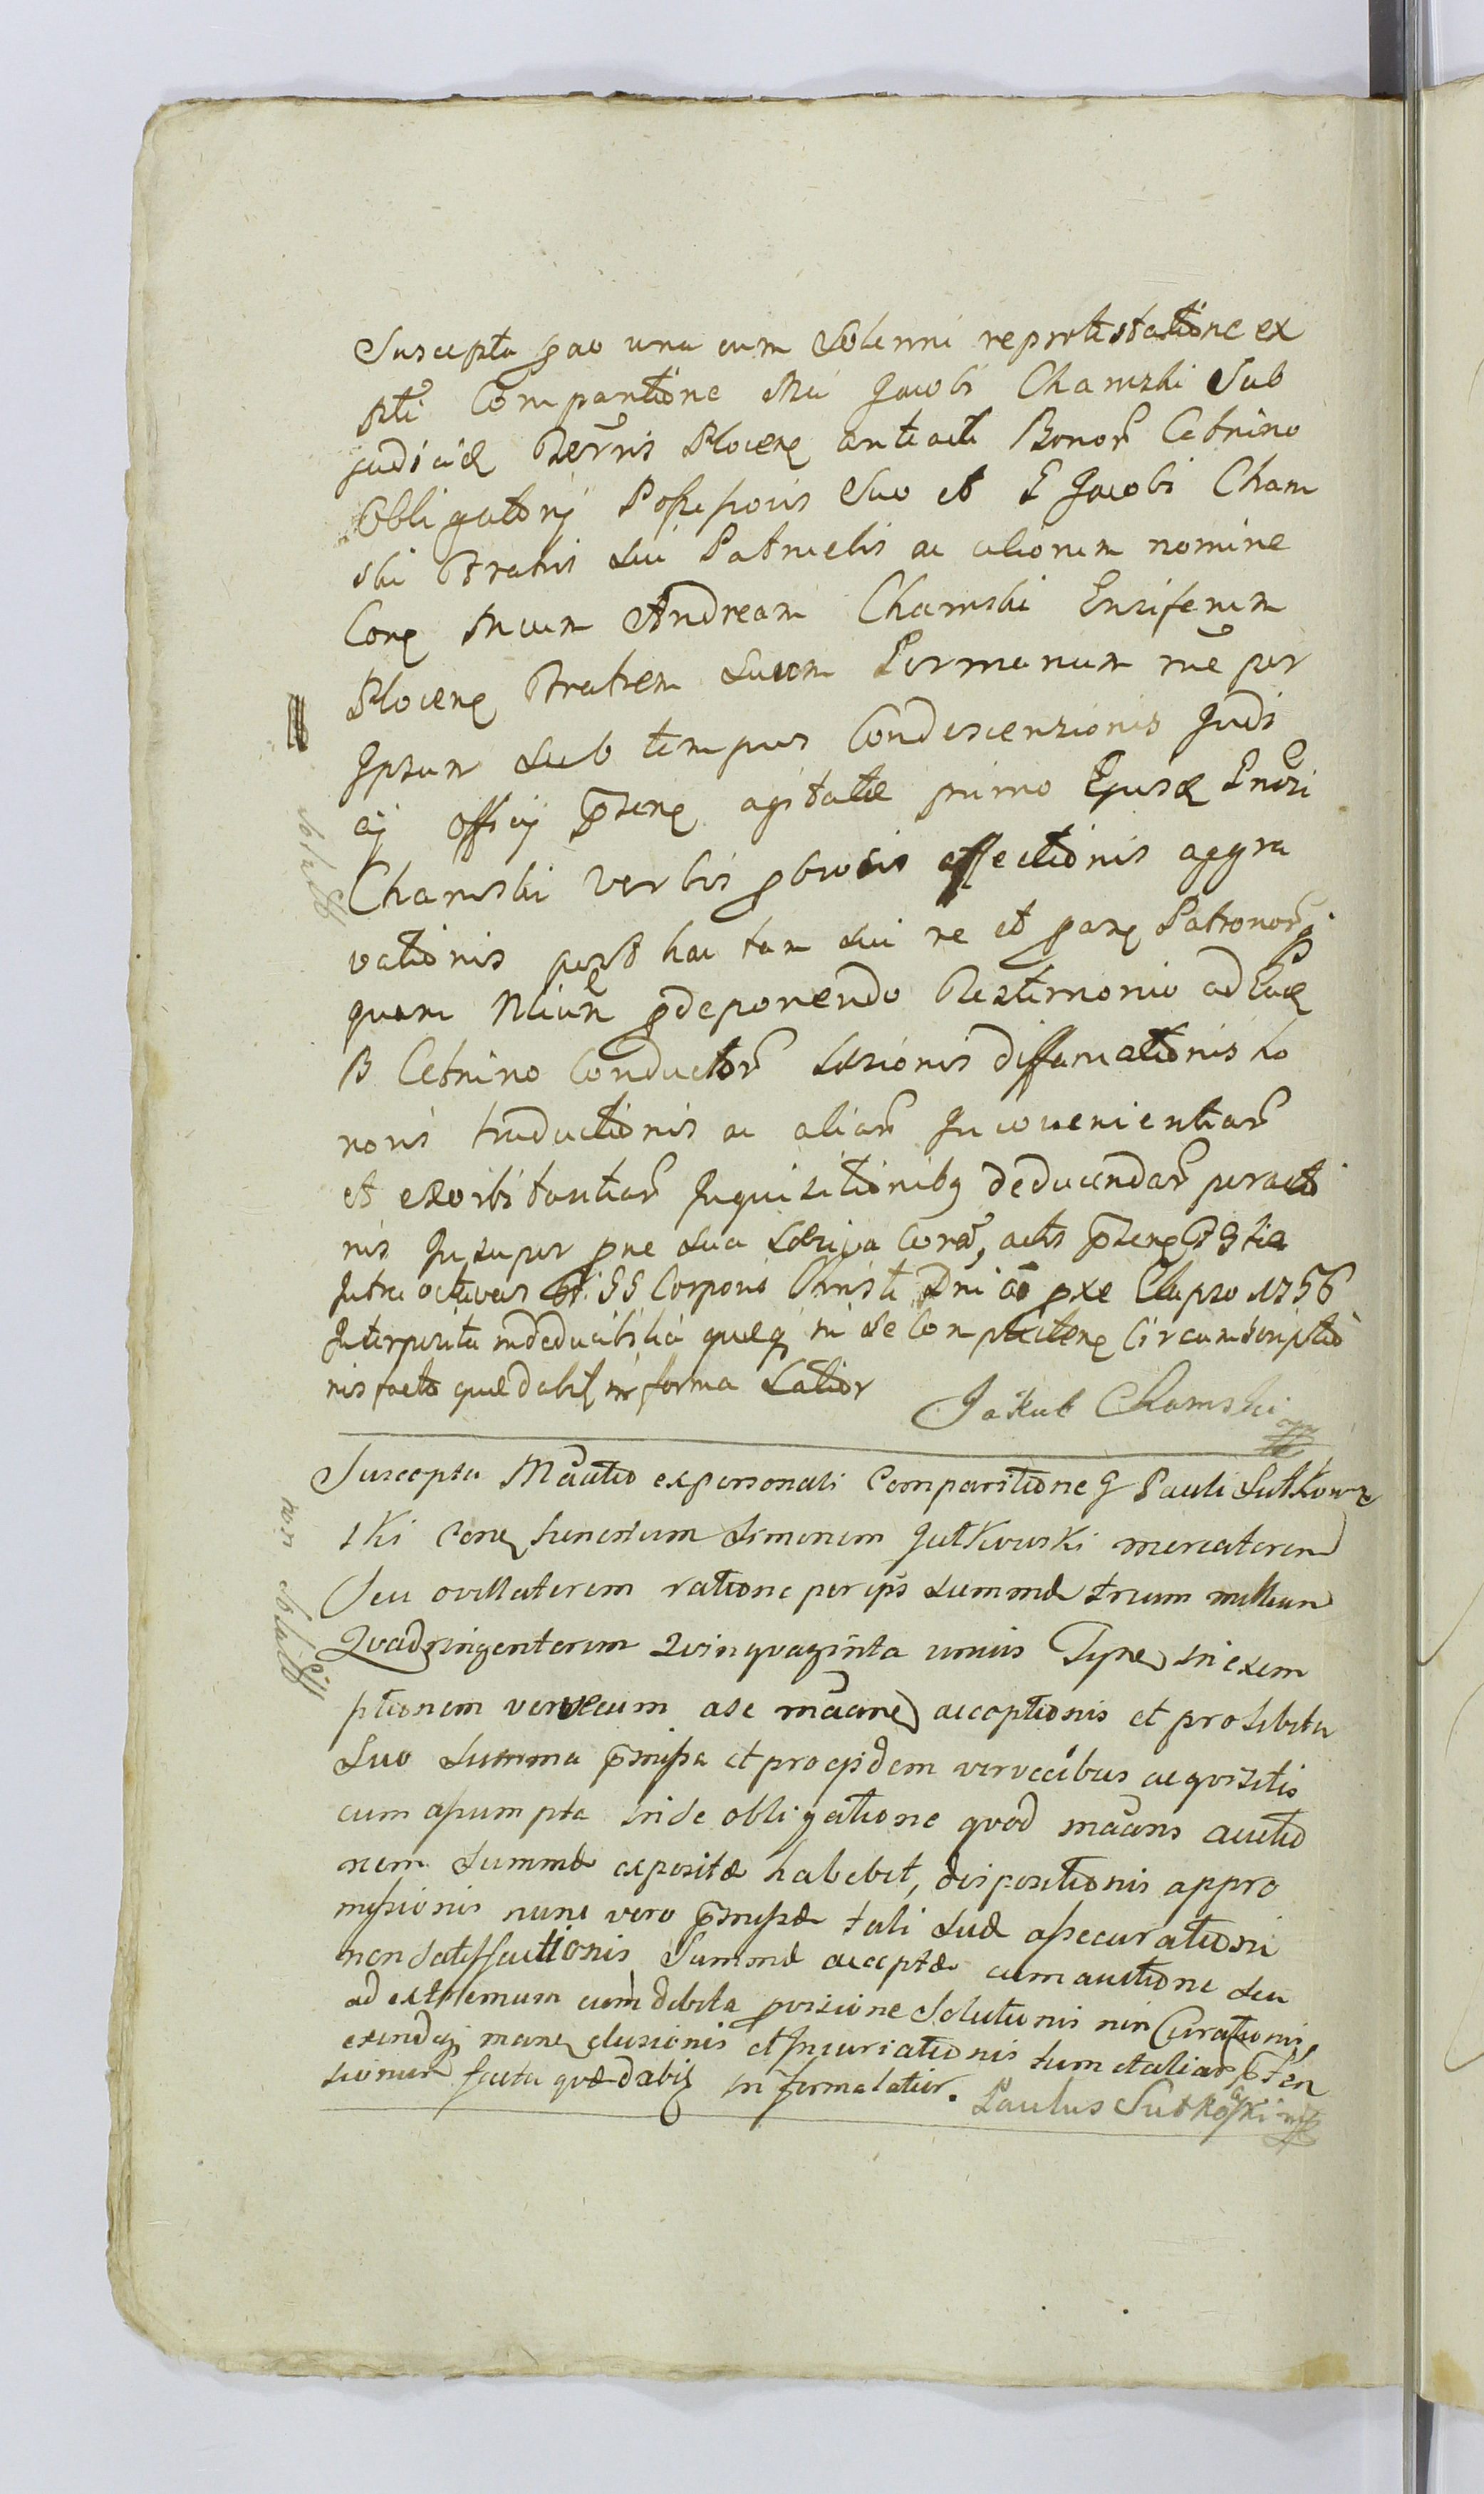 Suscepta pao una cum Solenni reprotestatione ex
pti Comparitione Mci Jacobi Chamski Sub
judicis Terris Plocens antiacti Bonor Cetnino
Obligatorij Possessoris Suo et G Jacobi Cham
ski Fratris Sui Patruelis ac aliorum nomine
Cong Mcum Andream Chamski Ensiferum
Plocens Fratrem Suum Germanum rne per
Ipsum Sub tempus Condescensionis Judi
cij Officij psens agitatæ primo Ejusd Ensi
Chamski verbis pbrosis affectionis aggra
vationis post hac tam sui ne et Patronor
quam pdeponendo Testimonio ad
B Cetnino Conductor Læsionis diffamationis ho
noris traductionis ac aliar Inconvenientiar
et exorbitantiar Inquisitionibq deducendar peracto
nis Insuper pne sua actis psens
Intra octavas SS Corporis Christi Dni px Elapso 1756
Interposita deducibilia quæq in se Complectens Circumscriptio
nis facta quæ dabit in forma Latior
Jakub Chamski mpp
Suscepta Mtatio ex personali Comparitione G Pauli Sutkow
ski Cong Simonem Jutkowski mercatorem
Seu ovillatorem ratione per ips Summæ trium millium
Quadringentorum Quinquaginta unius Tynf in exem
ptionem vervecum a se acceptionis et prohibita
Suo Summa pmissa et pro ejsdem vervecibus acqvisitis
cum assumpta in se obligatione quod auctio
nem Summæ expositæ habebit, dispositionis appro
missionis nunc vero pmissæ tali suæ assecurationi
non satisfactionis Summæ acceptæ cum auctione seu
ad extremum cum debita provisione Solutionis non Curationis
exindeq elusionis et Injuriationis tum et aliar pten
sionum facta quæ dabit in forma latior.
Paulus Sutkoski mpp